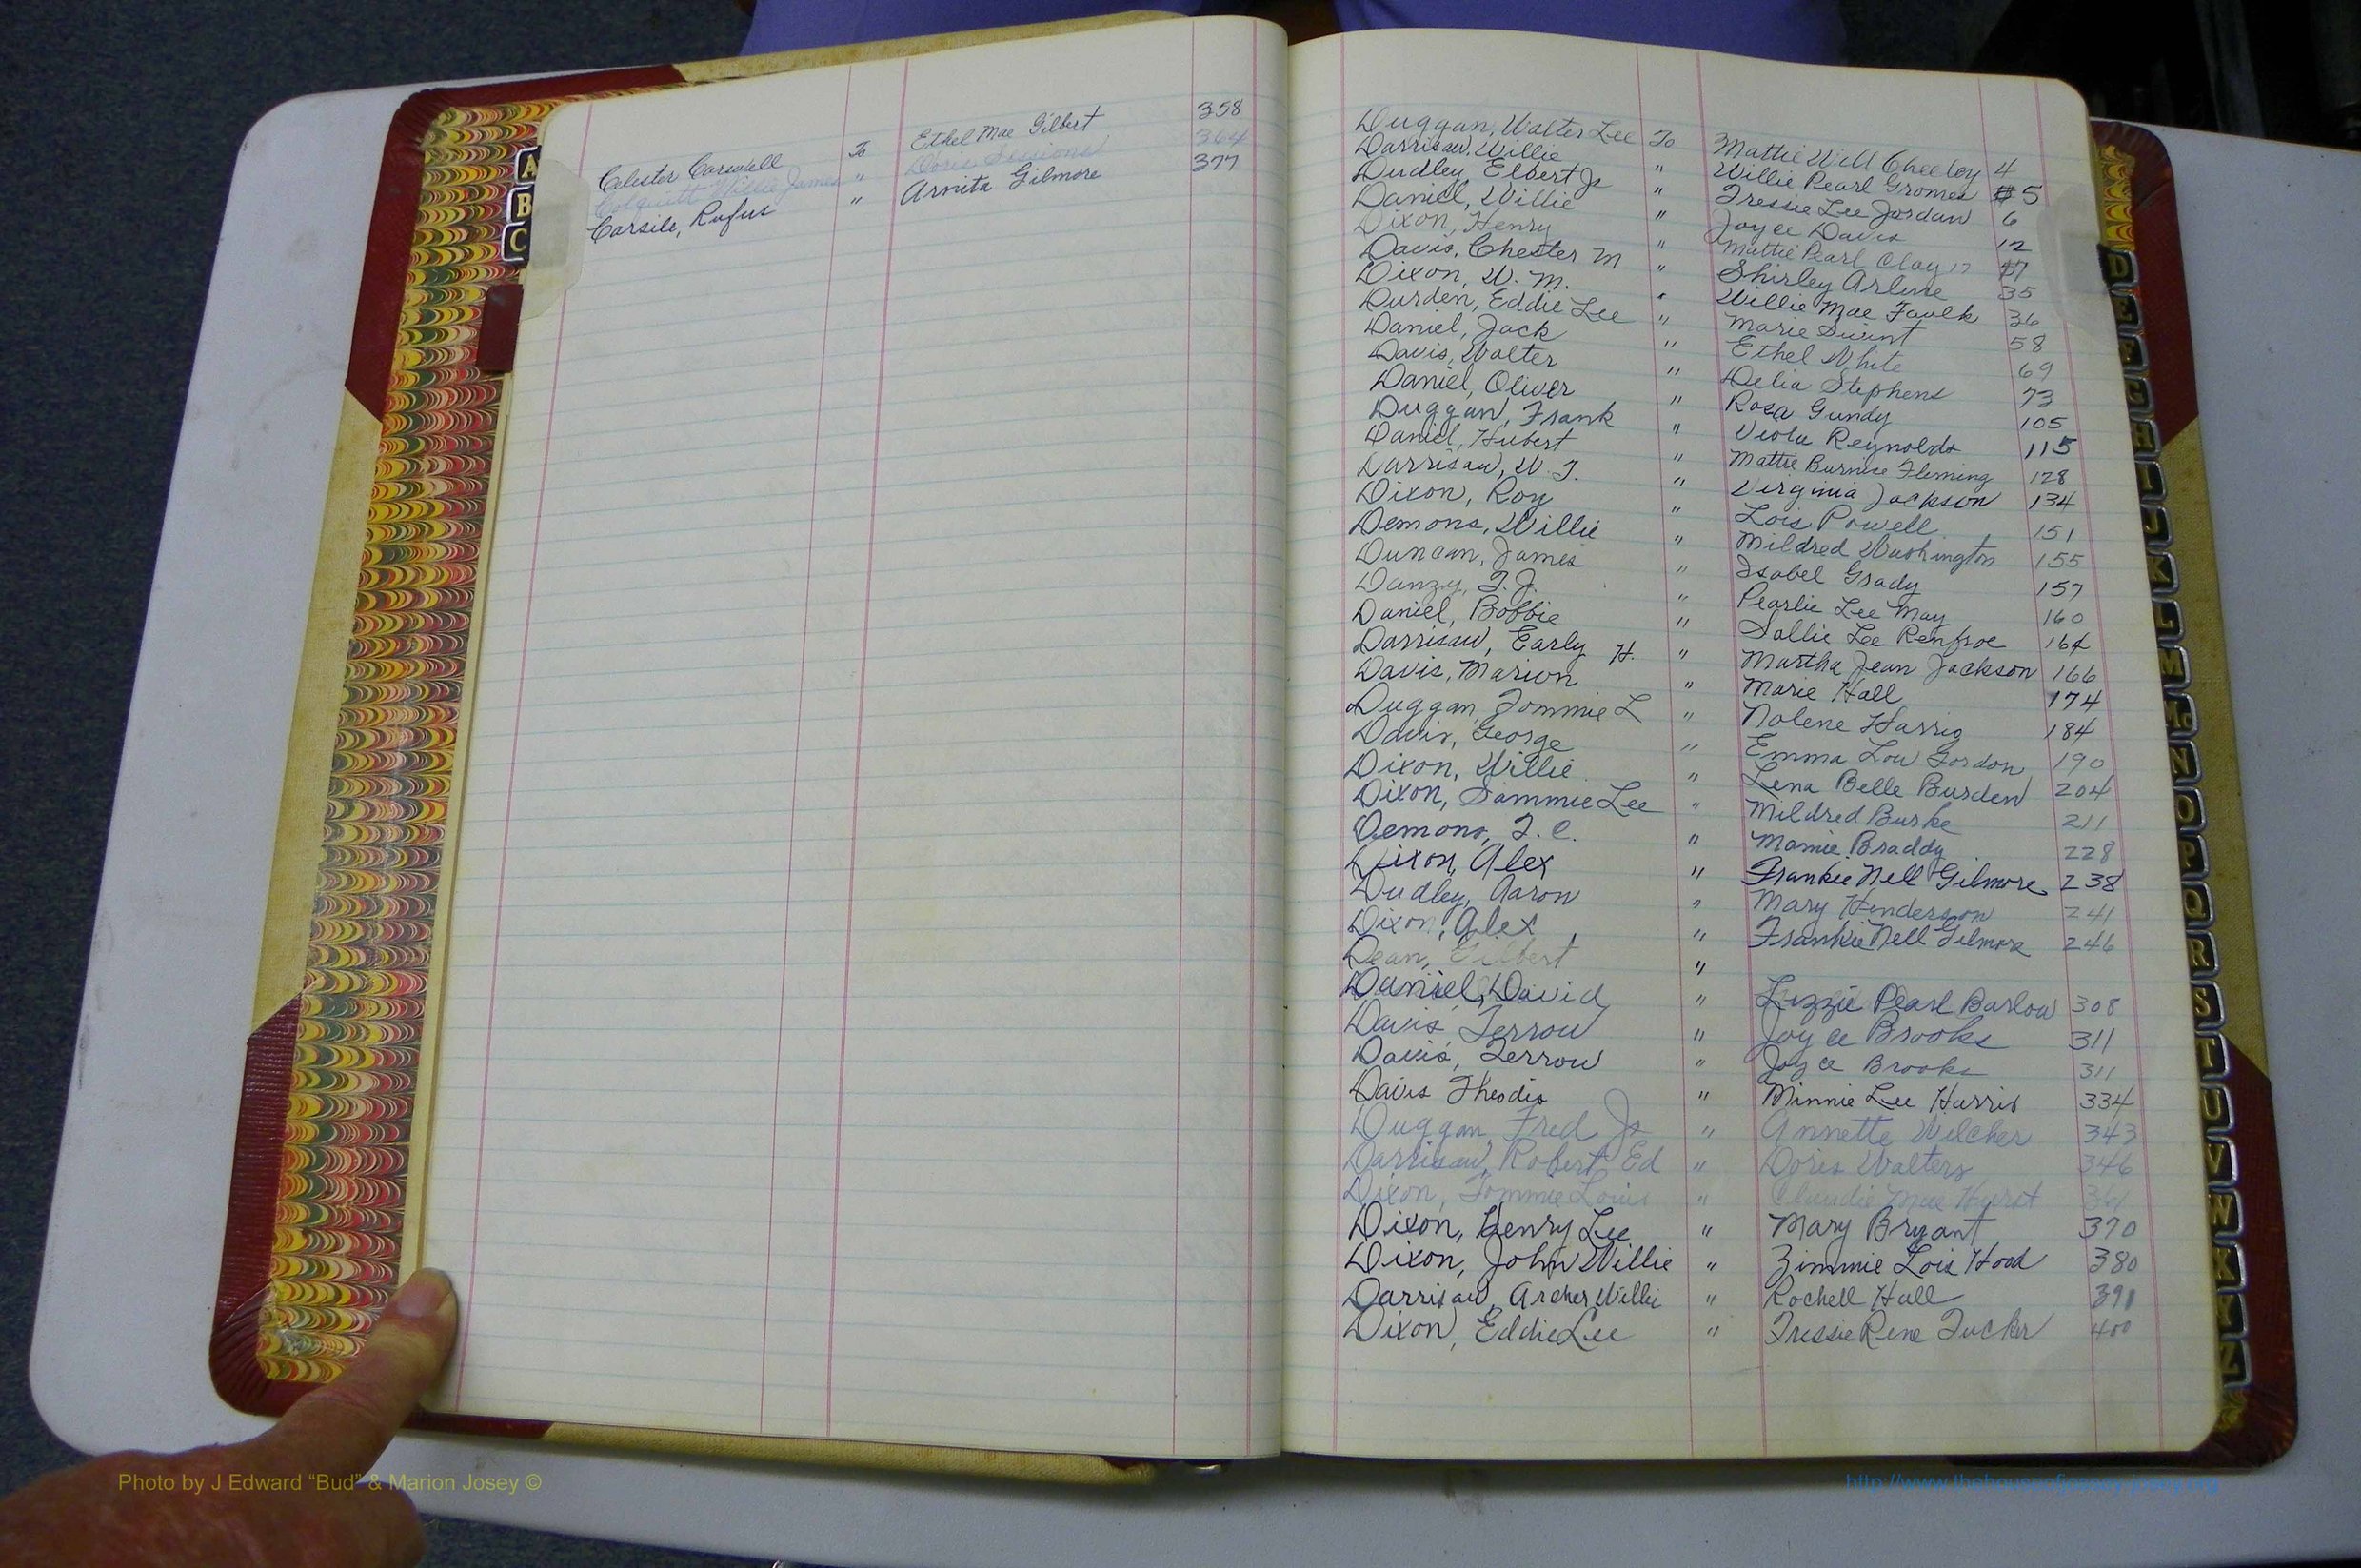 Celester Carswell To Ethel Mae Gilbert 358
Colquitt Willie James " Doris Sessions 364
Carsile, Rufus " Arnita Gilmore 377
Duggan, Walter Lee To Mattie Will Cheeley 4
Darrisaw, Willie " Willie Pearl Gromes 5
Dudley, Elbert Jr " Tressie Lee Jordan 6
Daniel, Willie " Joyce Davis 12
Dixon, Henry " Mattie Pearl Clay 17
Davis, Chester M " Shirley Arline 35
Dixon, W. M. " Willie Mae Faulk 36
Durden, Eddie Lee " Marie Swint 58
Daniel, Jack " Ethel White 69
Davis, Walter " Delia Stephens 73
Daniel, Oliver " Rosa Gundy 105
Duggan, Frank " Viola Reynolds 115
Daniel, Hubert " Mattie Burnice Fleming 128
Darrisaw, W. J. " Virginia Jackson 134
Dixon, Roy " Lois Powell 151
Demons, Willie " Mildred Washington 155
Duncan, James " Isabel Grady 157
Danzy, T. J. " Pearlie Lee May 160
Daniel, Bobbie " Sallie Lee Renfroe 164
Darrisaw, Early H. " Martha Jean Jackson 166
Davis, Marion " Marie Hall 174
Duggan, Tommie L " Nolene Harris 184
Davis, George " Emma Lou Gordon 190
Dixon, Willie " Lena Belle Burden 204
Dixon, Sammie Lee " Mildred Burke 211
Demons, T. C. " Mamie Braddy 228
Dixon, Alex " Frankie Nell Gilmore 238
Dudley, Aaron " Mary Henderson 241
Dixon, Alex " Frankie Nell Gilmore 246
Dean, Gilbert "
Daniel, David " Lizzie Pearl Barlow 308
Davis, Terrow " Joyce Brooks 311
Davis, Terrow " Joyce Brooks 311
Davis Theodis " Minnie Lee Harris 334
Duggan, Fred Jr " Annette Welcher 343
Darrisaw, Robert Ed " Doris Walters 346
Dixon, Tommie Louis " Claudie Mae Hurst
Dixon, Henry Lee " Mary Bryant 370
Dixon, John Willie " Zimmie Lois Hood 380
Darrisaw, Archer Willie " Rochell Hall 391
Dixon, Eddie Lee " Tressie Rene Tucker 400
A
B
C
D
E
F
G
H
I
J
K
L
M
Mc
N
O
P
Q
R
S
T
U
V
W
X
Y
Z
Photo by J Edward “Bud” & Marion Josey ©